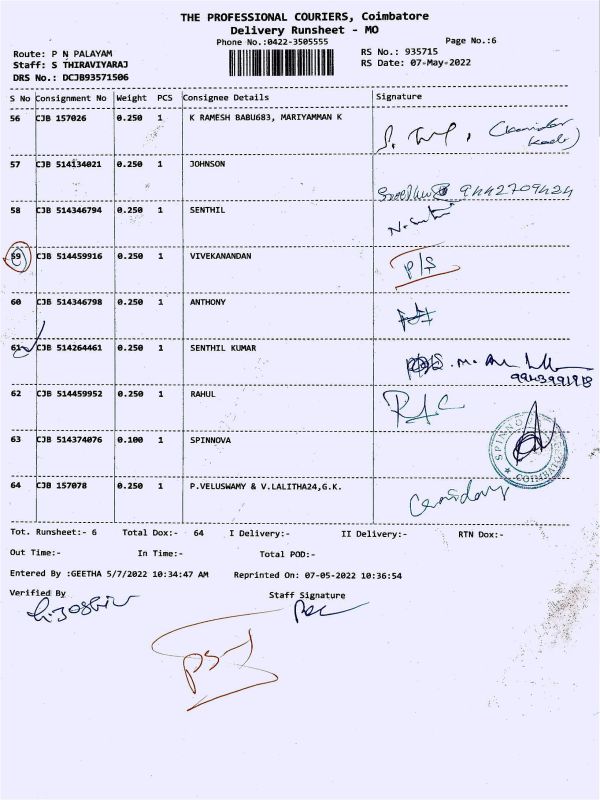 THE PROFESSIONAL COURIERS, Coimbatore
Delivery Runsheet - MO
Phone No.:0422-3505555 Page No.:6
Route: P N PALAYAM RS No.: 935715
Staff: S THIRAVIYARAJ RS Date: 07-May-2022
DRS No.: DCJB93571506
S No Consignment No Weight PCS Consignee Details Signature
56 CJB 157026 0.250 1 K RAMESH BABU683, MARIYAMMAN K
57 CJB 514134021 0.250 1 JOHNSON
9442709424
58 CJB 514346794 0.250 1 SENTHIL
59 CJB 514459916 0.250 1 VIVEKANANDAN P/S
60 CJB 514346798 0.250 1 ANTHONY
61 CJB 514264461 0.250 1 SENTHIL KUMAR
62 CJB 514459952 0.250 1 RAHUL
63 CJB 514374076 0.100 1 SPINNOVA
SPINNO
COIMBATO
64 CJB 157078 0.250 1 P.VELUSWAMY & V.LALITHA24,G.K.
Tot. Runsheet:- 6 Total Dox:- 64 I Delivery:- II Delivery:- RTN Dox:-
Out Time:- In Time:- Total POD:-
Entered By :GEETHA 5/7/2022 10:34:47 AM Reprinted On: 07-05-2022 10:36:54
Verified By Staff Signature